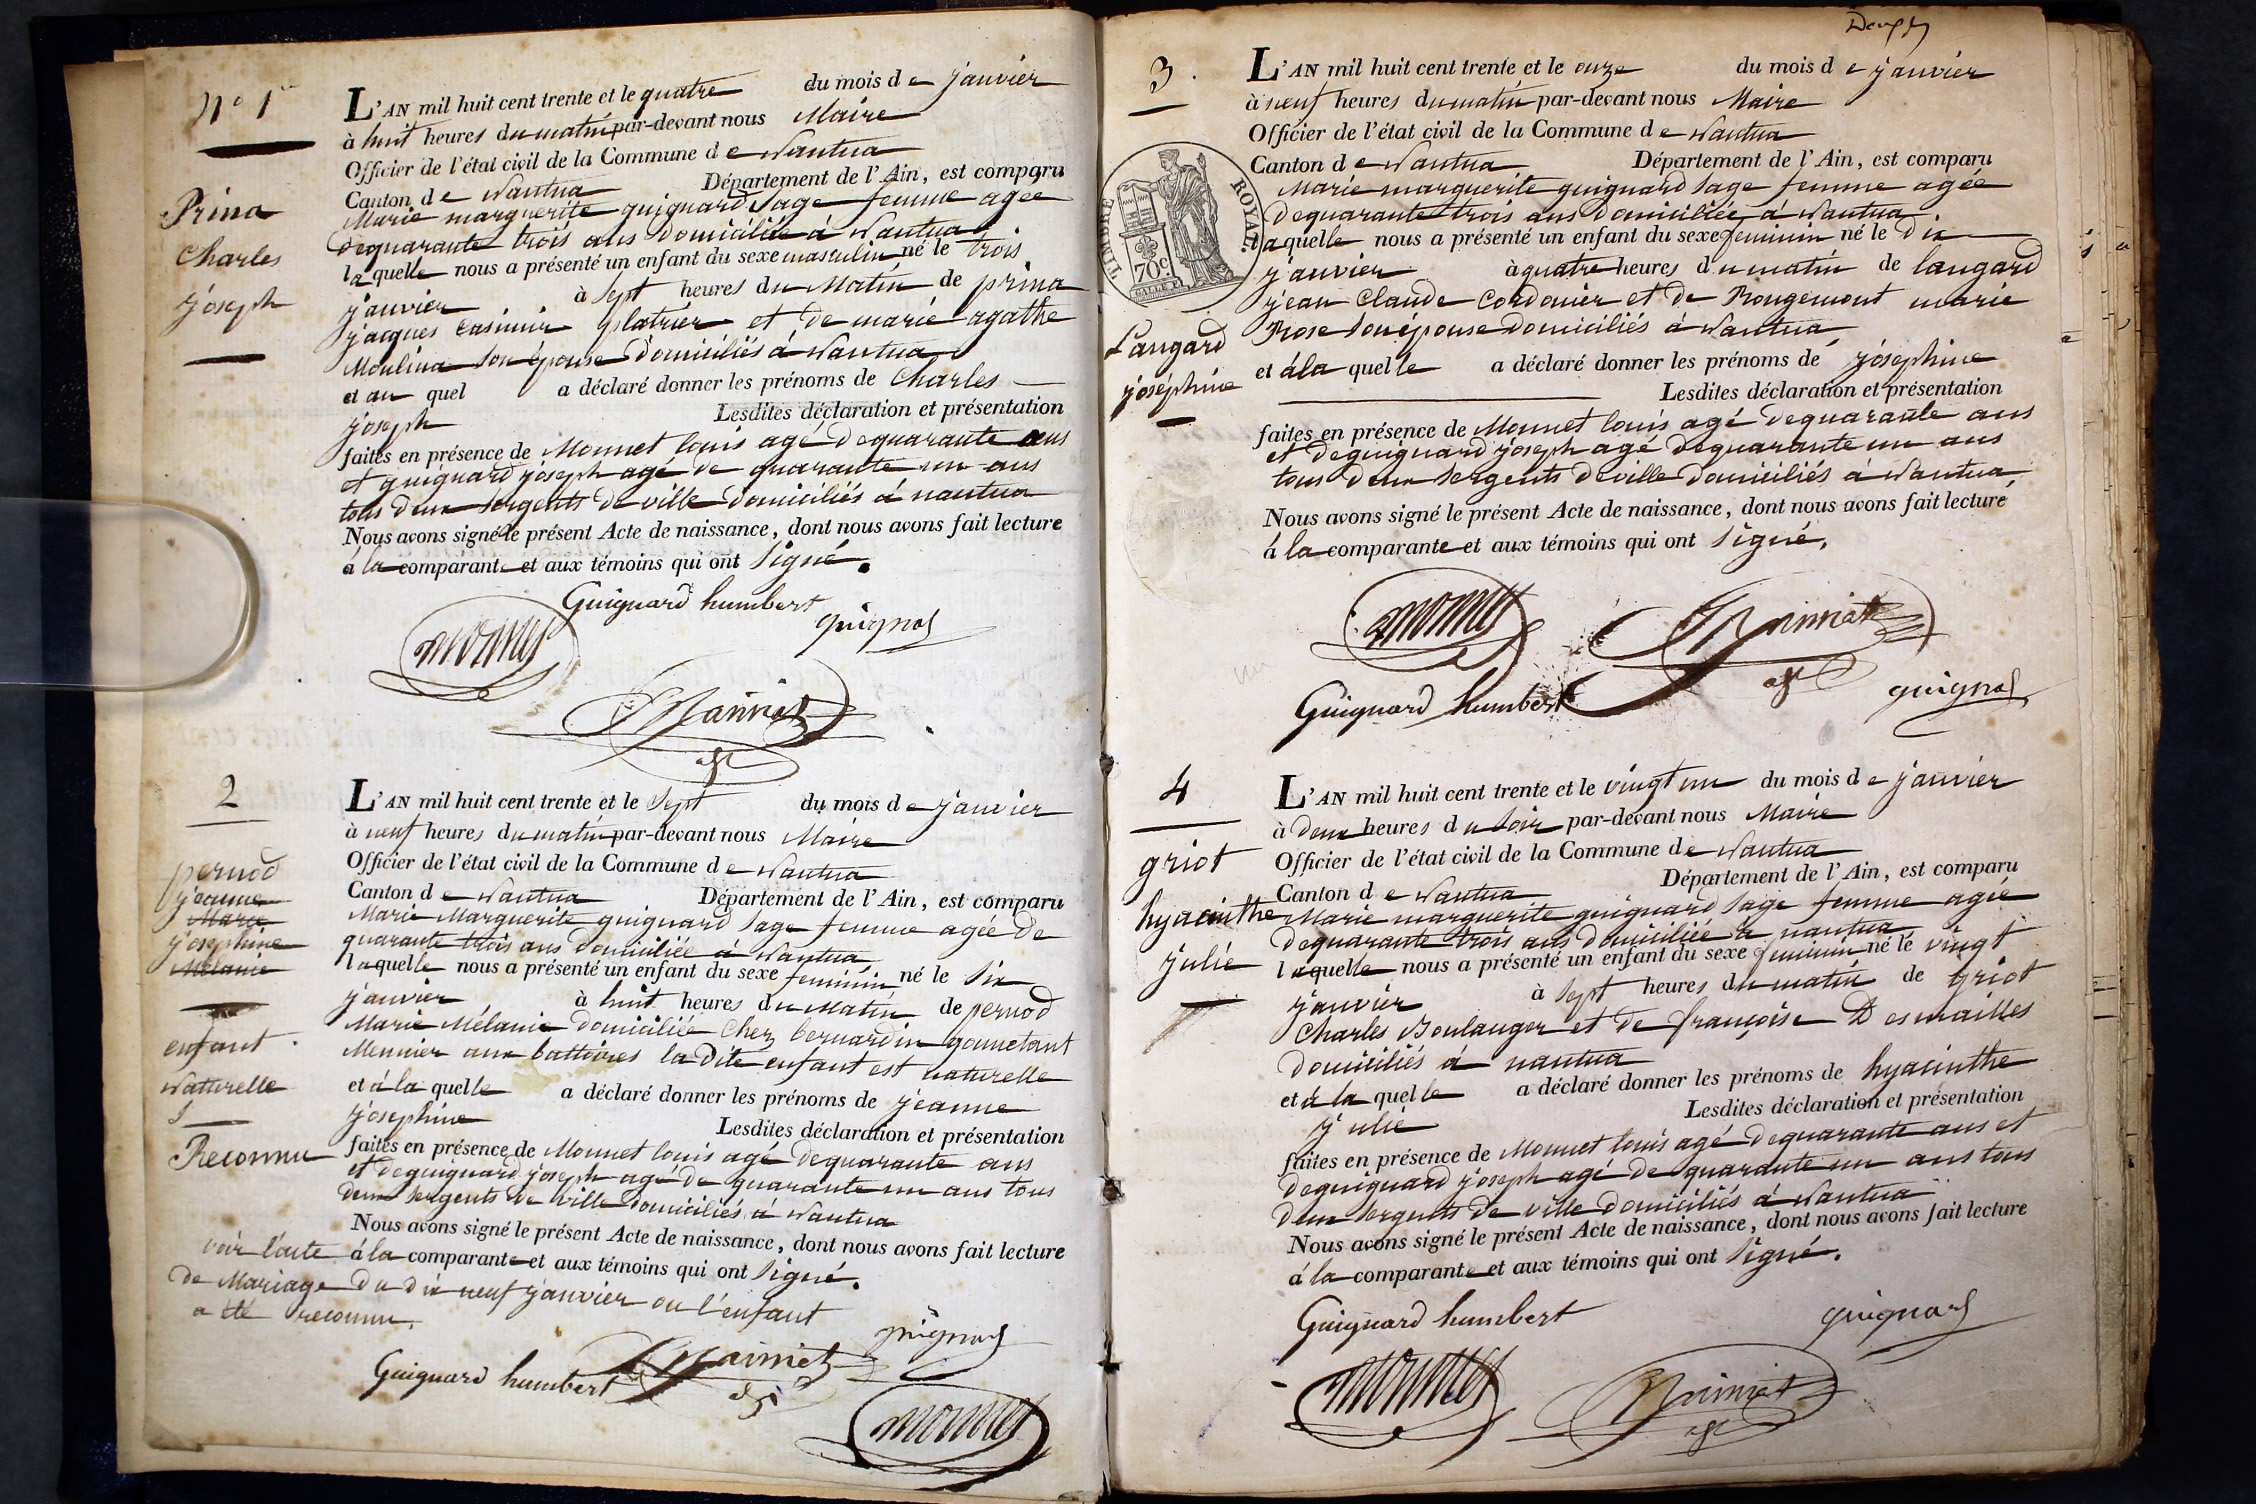 N° 1er
Prina
Charles
joseph
L'AN mil huit cent trente et le quatre du mois de janvier
à huit heures du matin par-devant nous Maire
Officier de l'état civil de la Commune de Nantua
Canton de Nantua Département de l'Ain, est comparu
Marie marguerite guignard Sage femme agée
dequarante trois ans domiciliée à Nantua
laquelle nous a présenté un enfant du sexe masculin né le trois
janvier à Sept heures du Matin de prina
jacques Casimir platrier et de marie agathe
Moulina Son épouse Domiciliés à Nantua
et au quel a déclaré donner les prénoms de Charles
joseph Lesdites déclaration et présentation
faites en présence de Monnet louis agé dequarante ans
et guignard joseph agé de quarante un ans
tous deux Sergents de ville Domiciliés à nantua
Nous avons signé le présent Acte de naissance, dont nous avons fait lecture
à la comparante et aux témoins qui ont Signé.
Guignard humbert
guignard
monnet
2
pernod
jeanne
Marie
josephine
Mélanie
enfant
Naturelle
Reconnu
L'AN mil huit cent trente et le Sept du mois de janvier
à neuf heures du matin par-devant nous Maire
Officier de l'état civil de la Commune de Nantua
Canton de Nantua Département de l'Ain, est comparu
Marie Marguerite guignard Sage femme agée de
quarante trois ans domiciliée à Nantua
laquelle nous a présenté un enfant du sexe feminin né le Six
janvier à huit heures du Matin de pernod
Marie Mélanie domiciliée chez bernardin gounetant
Meunier aux battoires la Dite enfant est naturelle
et à la quelle a déclaré donner les prénoms de jeanne
josephine Lesdites déclaration et présentation
faites en présence de Monnet louis agé dequarante ans
et deguignard joseph agé de quarante un ans tous
deux Sergents de ville Domiciliés à Nantua
Nous avons signé le présent Acte de naissance, dont nous avons fait lecture
à la comparante et aux témoins qui ont Signé.
voir l'acte
de Mariage Du Dix neuf janvier ou l'enfant
a été reconnu.
Guignard humbert
guignard
monnet
Deux
3.
TIMBRE ROYAL.
70c.
Langard
joséphine
L'AN mil huit cent trente et le onze du mois de janvier
à neuf heures du matin par-devant nous Maire
Officier de l'état civil de la Commune de Nantua
Canton de Nantua Département de l'Ain, est comparu
Marie marguerite guignard Sage femme agée
dequarante trois ans domiciliée à Nantua
laquelle nous a présenté un enfant du sexe feminin né le dix
janvier à quatre heures du matin de langard
jean Claude Cordonier et de Rougemont marie
Rose Son épouse domiciliés à Nantua
et à la quelle a déclaré donner les prénoms de joséphine
Lesdites déclaration et présentation
faites en présence de Monnet louis agé dequarante ans
et deguignard joseph agé dequarante un ans
tous deux Sergents deville domiciliés à Nantua
Nous avons signé le présent Acte de naissance, dont nous avons fait lecture
à la comparante et aux témoins qui ont Signé.
monnet
Guignard humbert
guignard
4
griot
hyacinthe
julie
L'AN mil huit cent trente et le vingt un du mois de janvier
à deux heures du Soir par-devant nous Maire
Officier de l'état civil de la Commune de Nantua
Canton de Nantua Département de l'Ain, est comparu
Marie marguerite guignard Sage femme agée
dequarante trois ans domiciliée à nantua
laquelle nous a présenté un enfant du sexe feminin né le vingt
janvier à Sept heures du matin de griot
Charles Boulanger et de françoise Desmailles
domiciliés à nantua
et à la quelle a déclaré donner les prénoms de hyacinthe
julie Lesdites déclaration et présentation
faites en présence de Monnet louis agé dequarante ans et
deguignard joseph agé de quarante un ans tous
deux Sergents de ville domiciliés à Nantua
Nous avons signé le présent Acte de naissance, dont nous avons fait lecture
à la comparante et aux témoins qui ont Signé.
Guignard humbert
guignard
monnet